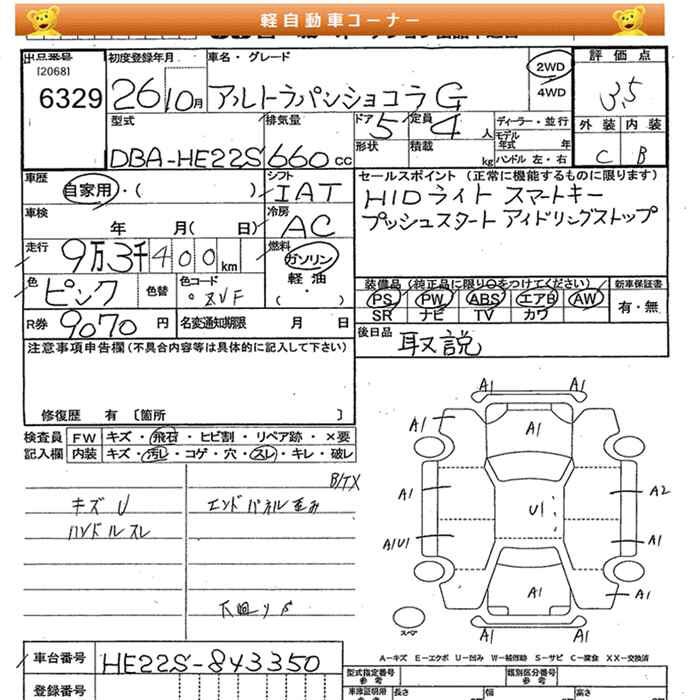 軽自動車コーナー
出品番号
[2068]
6329
初度登録年月
26 10月
車名・グレード
アルトラパンショコラ G
2WD
4WD
評価点
3.5
外装 内装
C B
型式
DBA-HE22S
排気量
660 cc
ドア 5
形状
定員 4 人
積載 kg
ディーラー・並行
モデル年式 年
ハンドル 左・右
車歴
自家用・( )
シフト
IAT
車検
年 月( 日)
冷房
AC
走行
9万3千400km
燃料
ガソリン
軽油
・( )
色
ピンク
色替
色コード
R券 9070 円
名変通知期限 月 日
セールスポイント (正常に機能するものに限ります)
HIDライト スマートキー
プッシュスタート アイドリングストップ
装備品 (純正品に限り○をつけてください)
PS PW ABS エアB AW
SR ナビ TV カワ
新車保証書
有・無
後日品
取説
注意事項申告欄 (不具合内容等は具体的に記入して下さい)
修復歴 有 〔箇所 〕
検査員
記入欄
FW キズ・飛石・ヒビ割・リペア跡・×要
内装 キズ・汚レ・コゲ・穴・スレ・キレ・破レ
キズU
ハンドルスレ
エンドパネル歪み
下廻リサビ
A1 A1
A1 A1 A1
A1 U1 A2
A1U1 A1
A1 A1
A1 A1
スペア
A-キズ E-エクボ U-凹み W-補修跡 S-サビ C-腐食 XX-交換済
車台番号 HE22S-843350
登録番号
型式指定番号
参考
類別区分番号
参考
車庫証明用
長さ 幅 高さ